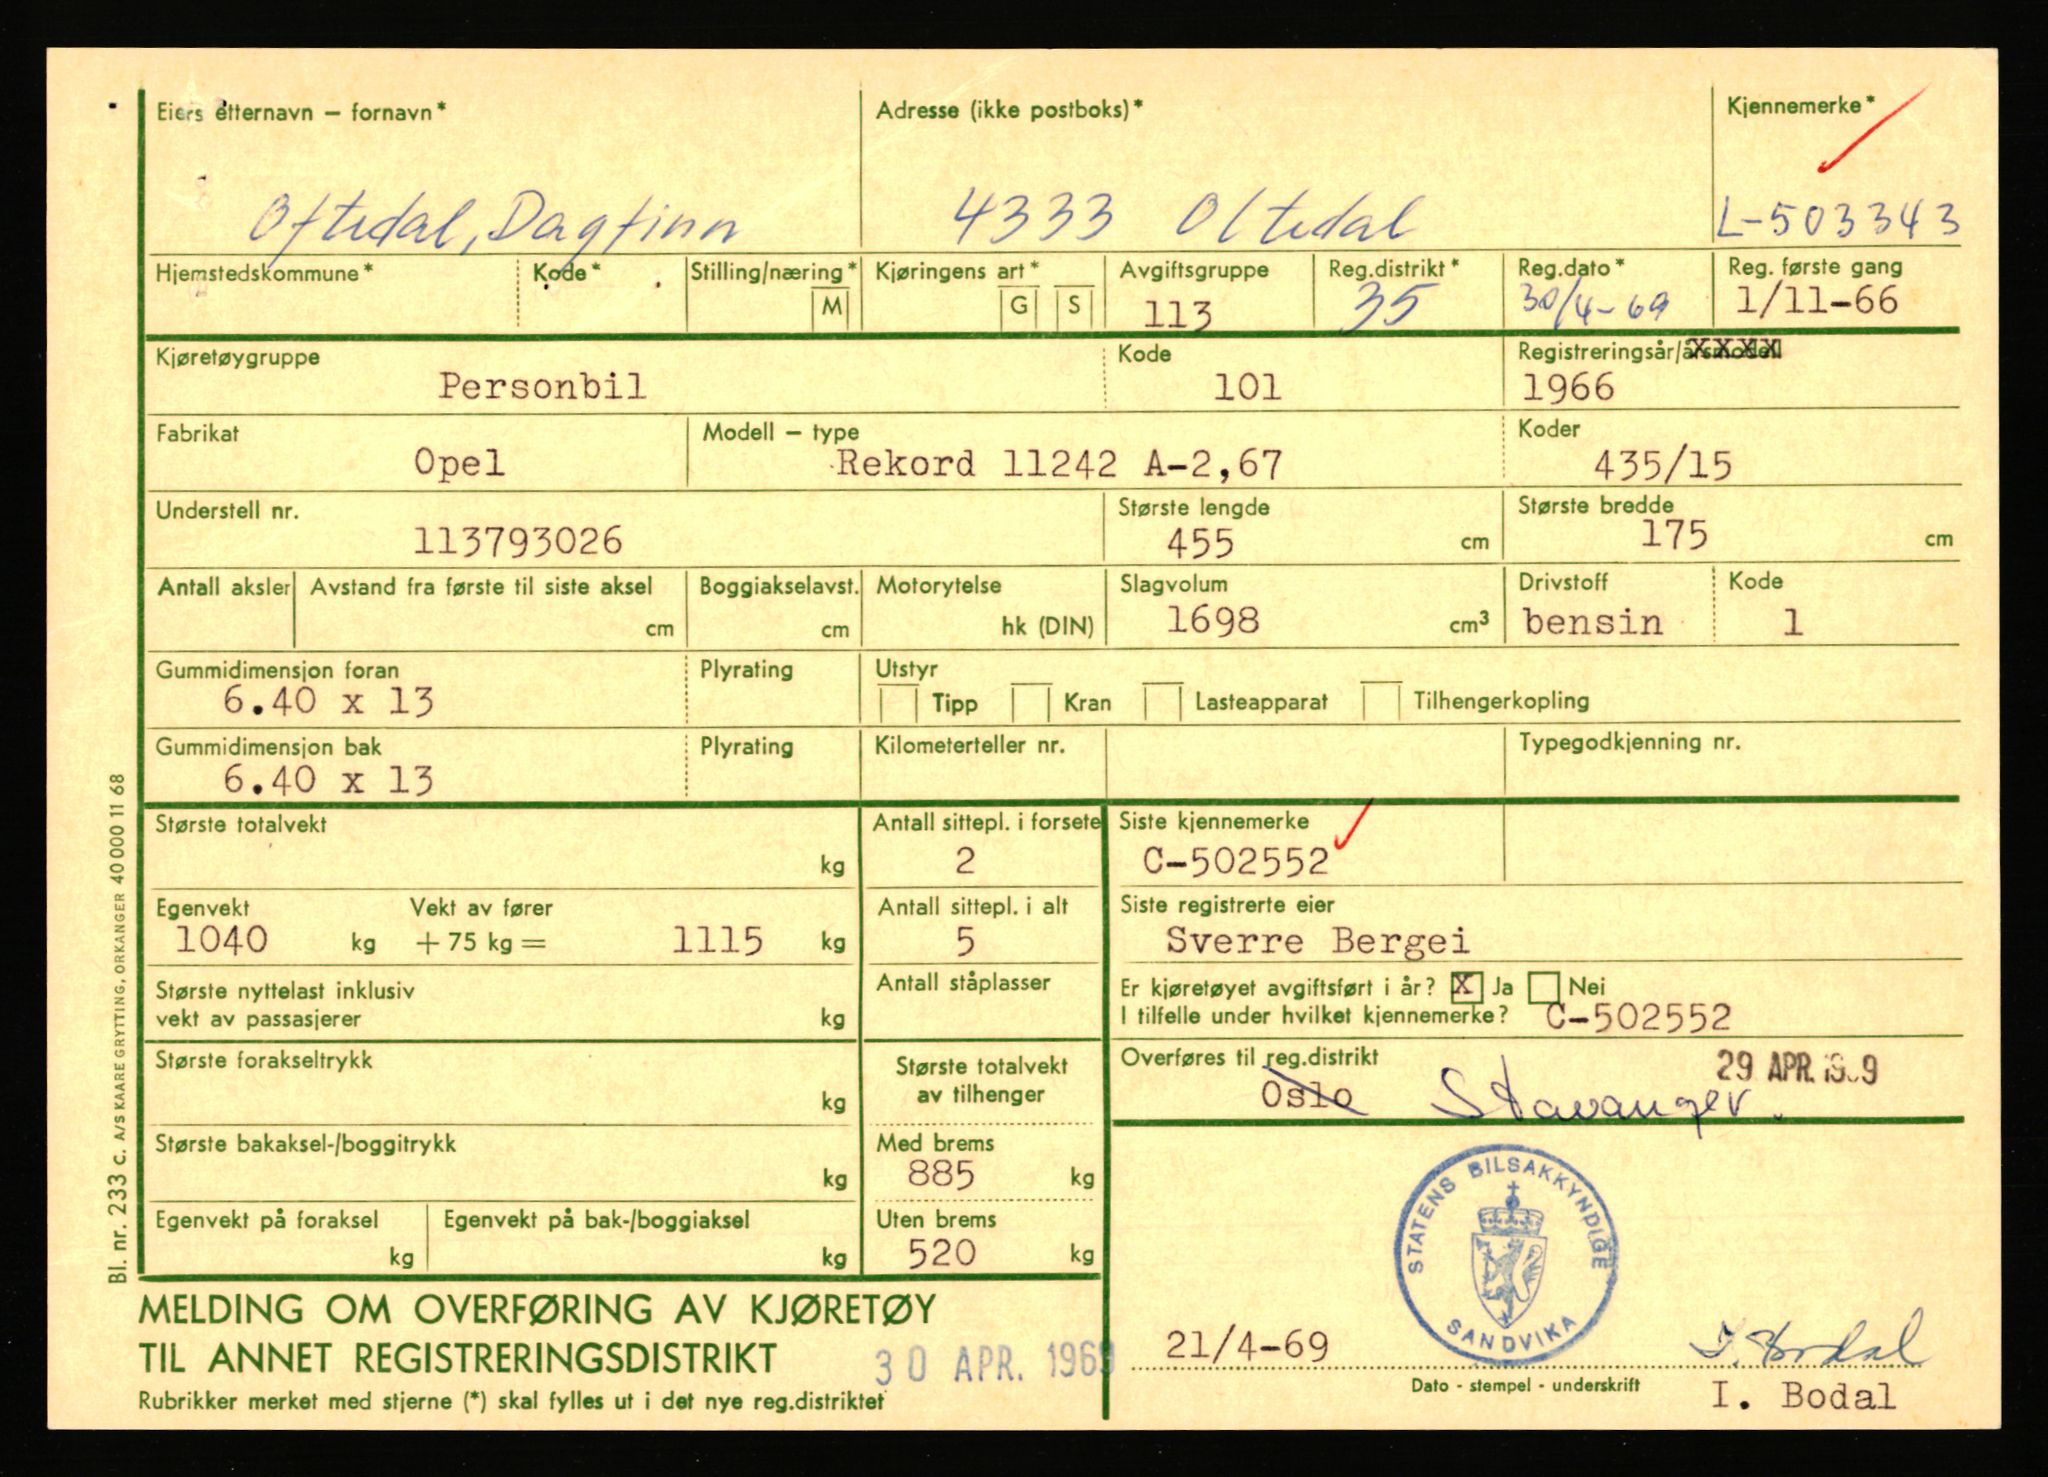 Eiers etternavn – fornavn*
Adresse (ikke postboks)*
Kjennemerke*
Oftedal, Dagfinn
4333 Oltedal
L-503343
Hjemstedskommune* Kode* Stilling/næring* M
Kjøringens art* G S
Avgiftsgruppe 113
Reg.distrikt* 35
Reg.dato* 30/4-69
Reg. første gang 1/11-66
Kjøretøygruppe Personbil
Kode 101
Registreringsår/årsmodell 1966
Fabrikat Opel
Modell – type Rekord 11242 A-2,67
Koder 435/15
Understell nr. 113793026
Største lengde 455 cm
Største bredde 175 cm
Antall aksler
Avstand fra første til siste aksel cm
Boggiakselavst. cm
Motorytelse hk (DIN)
Slagvolum 1698 cm3
Drivstoff bensin
Kode 1
Gummidimensjon foran 6.40 x 13
Plyrating
Utstyr
Tipp Kran Lasteapparat Tilhengerkopling
Gummidimensjon bak 6.40 x 13
Plyrating
Kilometerteller nr.
Typegodkjenning nr.
Største totalvekt kg
Antall sittepl. i forsete 2
Siste kjennemerke C-502552
Egenvekt 1040 kg
Vekt av fører + 75 kg = 1115 kg
Antall sittepl. i alt 5
Siste registrerte eier Sverre Bergei
Største nyttelast inklusiv
vekt av passasjerer kg
Antall ståplasser
Er kjøretøyet avgiftsført i år? X Ja Nei
I tilfelle under hvilket kjennemerke? C-502552
Største forakseltrykk kg
Største totalvekt
av tilhenger
Overføres til reg.distrikt
29 APR. 1969
Oslo Stavanger.
Største bakaksel-/boggitrykk kg
Med brems 885 kg
Egenvekt på foraksel kg
Egenvekt på bak-/boggiaksel kg
Uten brems 520 kg
STATENS BILSAKKYNDIGE
SANDVIKA
MELDING OM OVERFØRING AV KJØRETØY
TIL ANNET REGISTRERINGSDISTRIKT
30 APR. 1969
Rubrikker merket med stjerne (*) skal fylles ut i det nye reg.distriktet
21/4-69
I. Bodal
Dato - stempel - underskrift
I. Bodal
Bl. nr. 233 c. A/S KAARE GRYTTING, ORKANGER 40 000 11 68